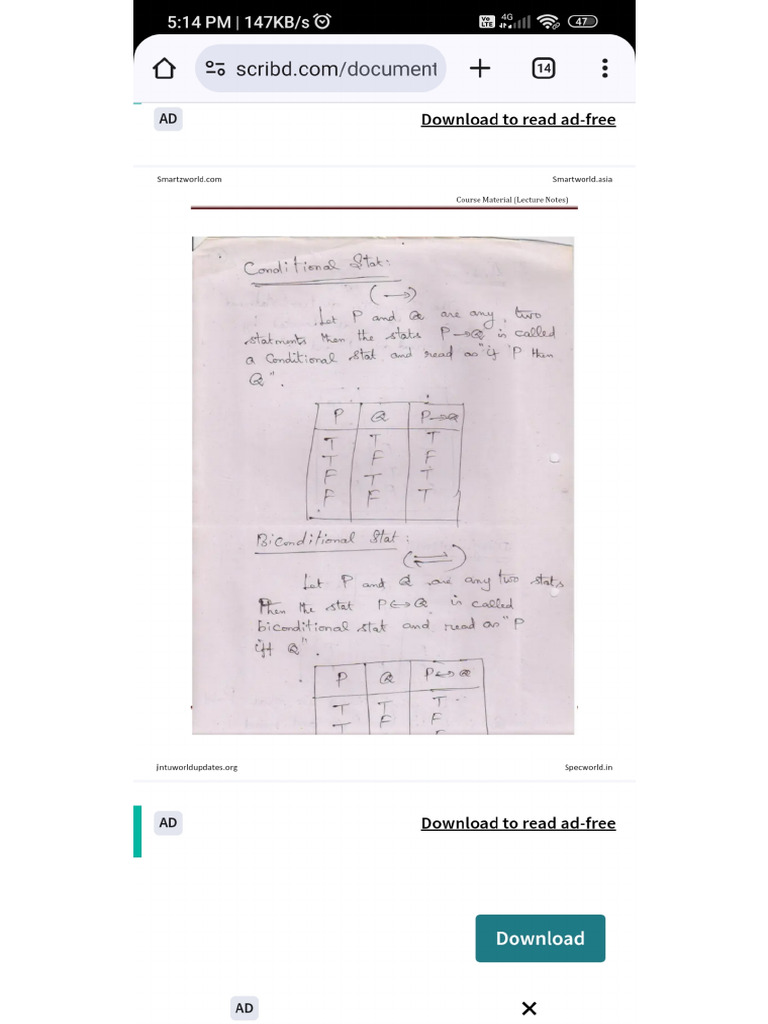 5:14 PM | 147KB/s
Vo LTE 4G 47
scribd.com/document
14
AD
Download to read ad-free
Smartzworld.com
Smartworld.asia
Course Material (Lecture Notes)
Conditional Stat:
(→)
Let P and Q are any two
statments then the stats P→Q is called
a Conditional stat and read as "if P then
Q".
P Q P→Q
T T T
T F F
F T T
F F T
BiConditional Stat:
(⇌)
Let P and Q are any two stats
Then the stat P↔Q is called
biconditional stat and read as "P
iff Q".
P Q P↔Q
T T T
T F F
jntuworldupdates.org
Specworld.in
AD
Download to read ad-free
Download
AD